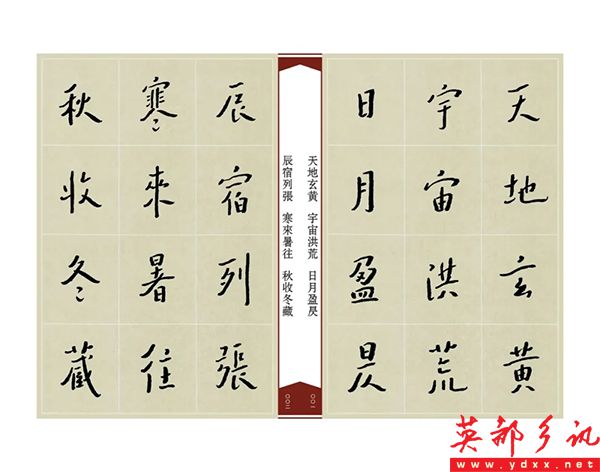 天地玄黄
宇宙洪荒
日月盈昃
天地玄黄　宇宙洪荒　日月盈昃
辰宿列張　寒來暑往　秋收冬藏
辰宿列張
寒來暑往
秋收冬藏
英都乡讯
www.ydxx.net